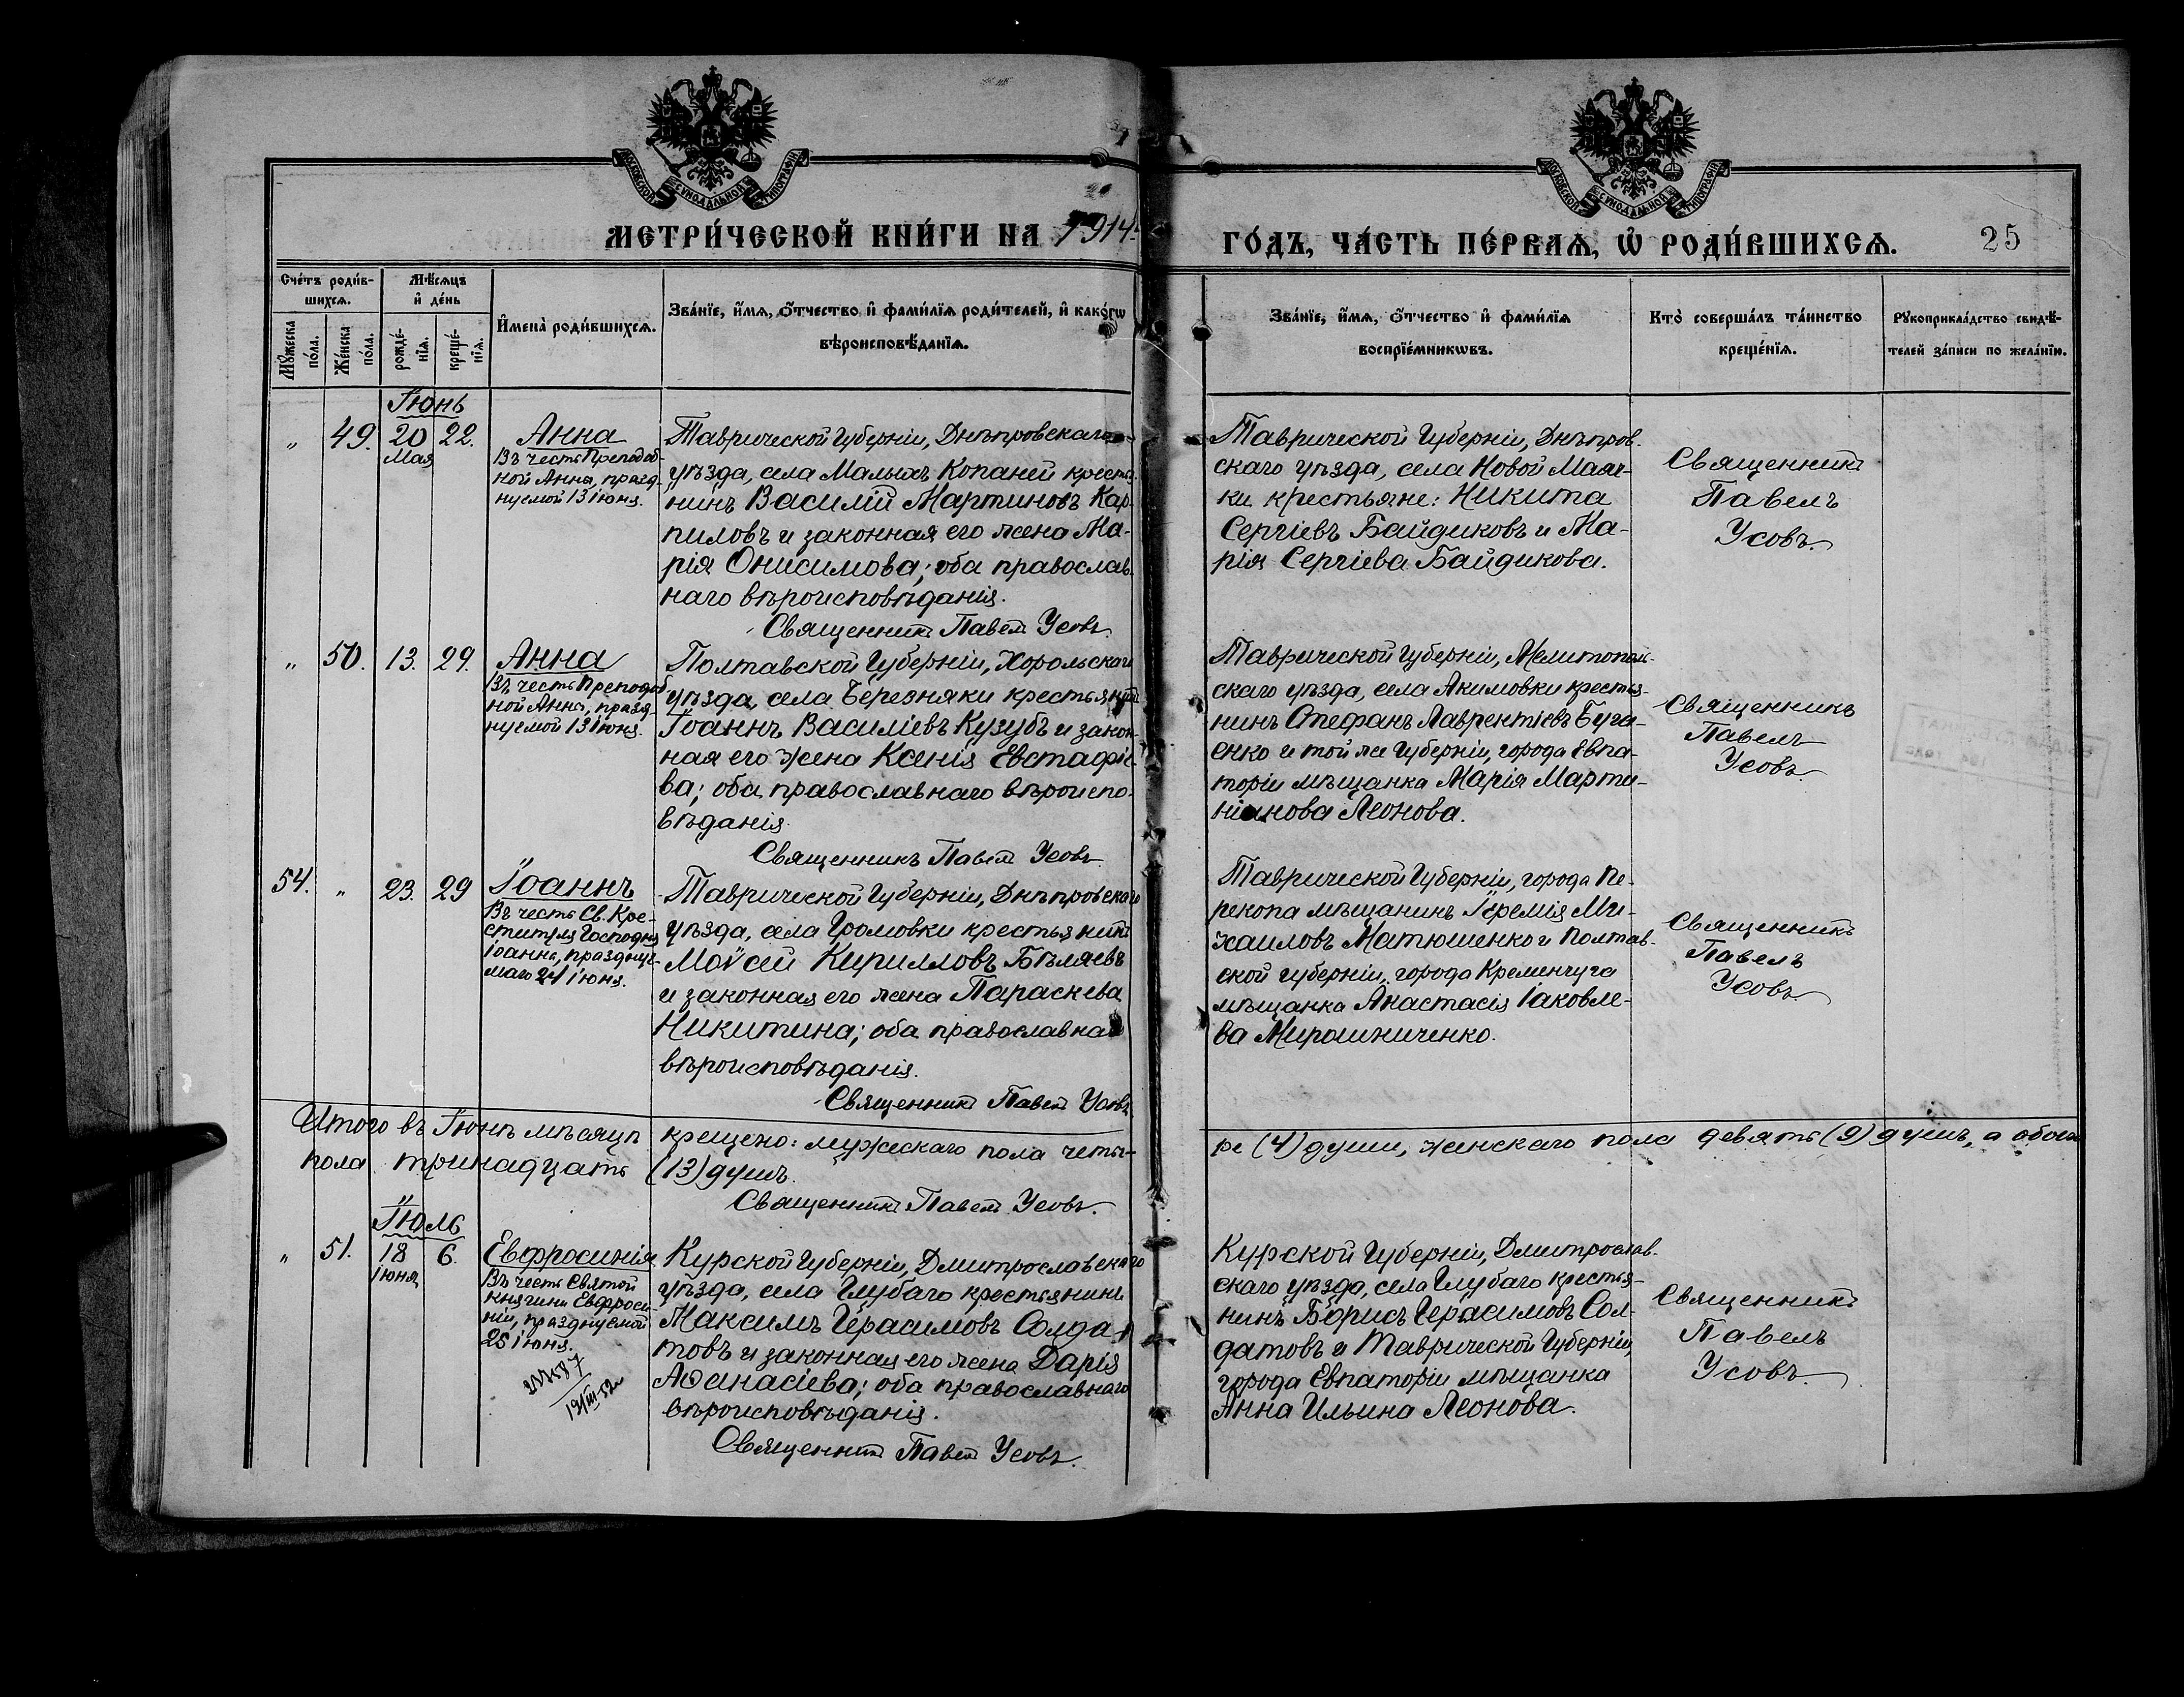 МОСКОВСКОЙ СѴНОДАЛЬНОЙ ТИПОГРАФІИ
МОСКОВСКОЙ СѴНОДАЛЬНОЙ ТИПОГРАФІИ
МЕТРИ́ЧЕСКОЙ КНИ́ГИ НА 1914 ГО́ДЪ, ЧА́СТЬ ПЕ́РВАѦ, Ѡ҆ РОДИ́ВШИХСѦ.
25
Сче́тъ роди́в-
шихсѧ.
Мѣ́сѧцъ
и҆ де́нь
Мꙋ́жеска
по́ла.
Же́нска
по́ла.
рожде́-
нїѧ.
креще́-
нїѧ.
И҆мена̀ роди́вшихсѧ.
Зва́нїе, и҆́мѧ, ѻ҆́тчество и҆ фами́лїѧ роди́телей, и҆ како́гѡ
вѣроисповѣ́данїѧ.
Зва́нїе, и҆́мѧ, ѻ҆́тчество и҆ фами́лїѧ
воспрїе́мникѡвъ.
Кто̀ соверша́лъ та́инство
креще́нїѧ.
Рꙋкоприкла́дство свидѣ́-
телей за́писи по жела́нїю.
Іюнь
" 49. 20 22.
Мая
Анна
Въ честь Преподоб-
ной Анны, празд-
нуемой 13 іюня.
Таврической Губерніи, Днѣпровскаго
уѣзда, села Малыхъ Копаней крестья-
нинъ Василій Мартиновъ Кар-
пиловъ и законная его жена Ма-
рія Онисимова; оба православ-
наго вѣроисповѣданія.
Священникъ Павелъ Усовъ.
Таврической Губерніи, Днѣпров-
скаго уѣзда, села Новой Маяч-
ки крестьяне: Никита
Сергіевъ Байдиковъ и Ма-
рія Сергіева Байдикова.
Священникъ
Павелъ
Усовъ.
" 50. 13. 29.
Анна
Въ честь Преподоб-
ной Анны, празд-
нуемой 13 іюня.
Полтавской Губерніи, Хорольскаго
уѣзда, села Березняки крестьянинъ
Іоаннъ Василіевъ Кузубъ и закон-
ная его жена Ксенія Евстафіе-
ва; оба православнаго вѣроиспо-
вѣданія.
Священникъ Павелъ Усовъ.
Таврической Губерніи, Мелитополь-
скаго уѣзда, села Акимовки крестья-
нинъ Стефанъ Лаврентіевъ Буга-
енко и той же Губерніи, города Евпа-
торіи мѣщанка Марія Марти-
ніанова Леонова.
Священникъ
Павелъ
Усовъ.
54. " 23. 29
Іоаннъ
Въ честь Св. Кре-
стителя Господня
Іоанна, празднуе-
маго 24 іюня.
Таврической Губерніи, Днѣпровскаго
уѣзда, села Громовки крестьянинъ
Моѵсей Кирилловъ Бѣляевъ
и законная его жена Параскева
Никитина; оба православнаго
вѣроисповѣданія.
Священникъ Павелъ Усовъ.
Таврической Губерніи, города Пе-
рекопа мѣщанинъ Іеремія Ми-
хаиловъ Матюшенко и Полтав-
ской губерніи, города Кременчуга
мѣщанка Анастасія Іаковле-
ва Мирошниченко.
Священникъ
Павелъ
Усовъ.
Итого въ Іюнѣ мѣсяцѣ крещено: мужескаго пола четы-
ре (4) души, женскаго пола девять (9) душъ, а обоего
пола тринадцать (13) душъ.
Священникъ Павелъ Усовъ.
Іюль
" 51. 18 6.
іюня
Евфросинія
Въ честь Святой
Княгини Евфроси-
ніи, празднуемой
25 іюня.
Курской Губерніи, Дмитрославскаго
уѣзда, села Глубаго крестьянинъ
Максимъ Герасимовъ Солда-
товъ и законная его жена Дарія
Аѳанасіева; оба православнаго
вѣроисповѣданія.
Священникъ Павелъ Усовъ.
Курской Губерніи, Дмитрослав-
скаго уѣзда, села Глубаго крестья-
нинъ Борисъ Герасимовъ Сол-
датовъ и Таврической Губерніи,
города Евпаторіи мѣщанка
Анна Ильина Леонова.
Священникъ
Павелъ
Усовъ.